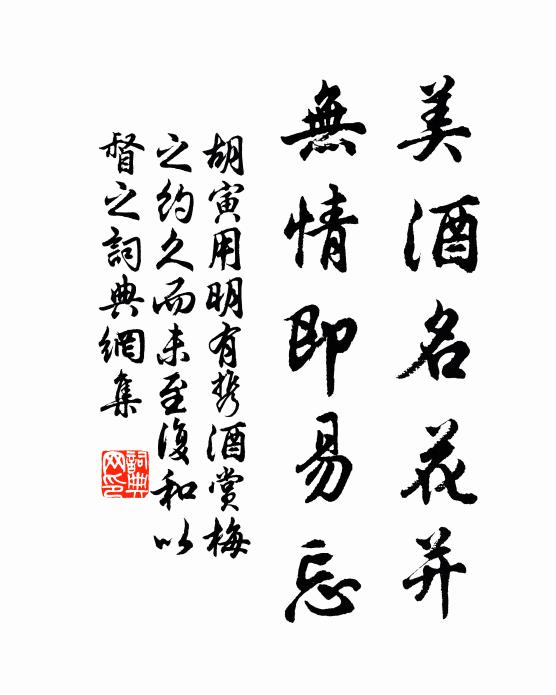 美酒名花并
無情即易忘
胡寅用明有携酒賞梅
之約久而未至復和以
督之詞典網集
詞典网印